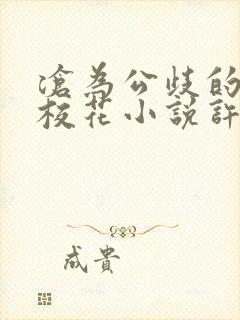 淪為公歧的
校花小說許
成貴